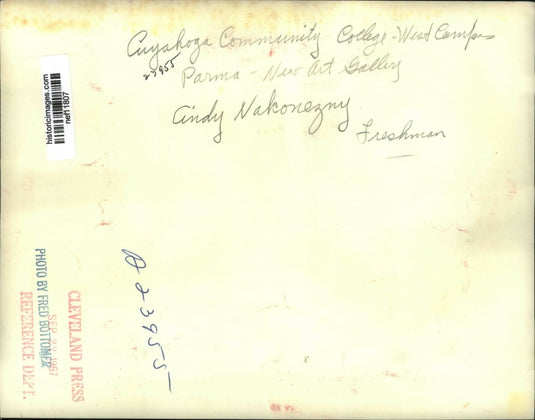 Cuyahoga Community College - West Campus
23955
Parma - New Art Gallery
Cindy Nakonezny
Freshman
historicimages.com
nef11807
A 23955
CLEVELAND PRESS
SEP 1967
PHOTO BY FRED BOTTOMER
REFERENCE DEPT.